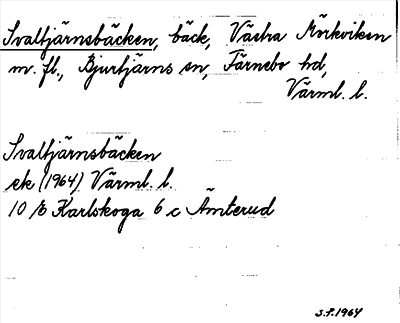 Svaltjärnsbäcken, bäck, Västra Mörkviken
m. fl., Bjurtjärns sn, Färnebo hd,
Värml. l.
Svaltjärnsbäcken
ek (1964) Värml. l.
10 E Karlskoga 6 c Ämterud
S.F. 1964